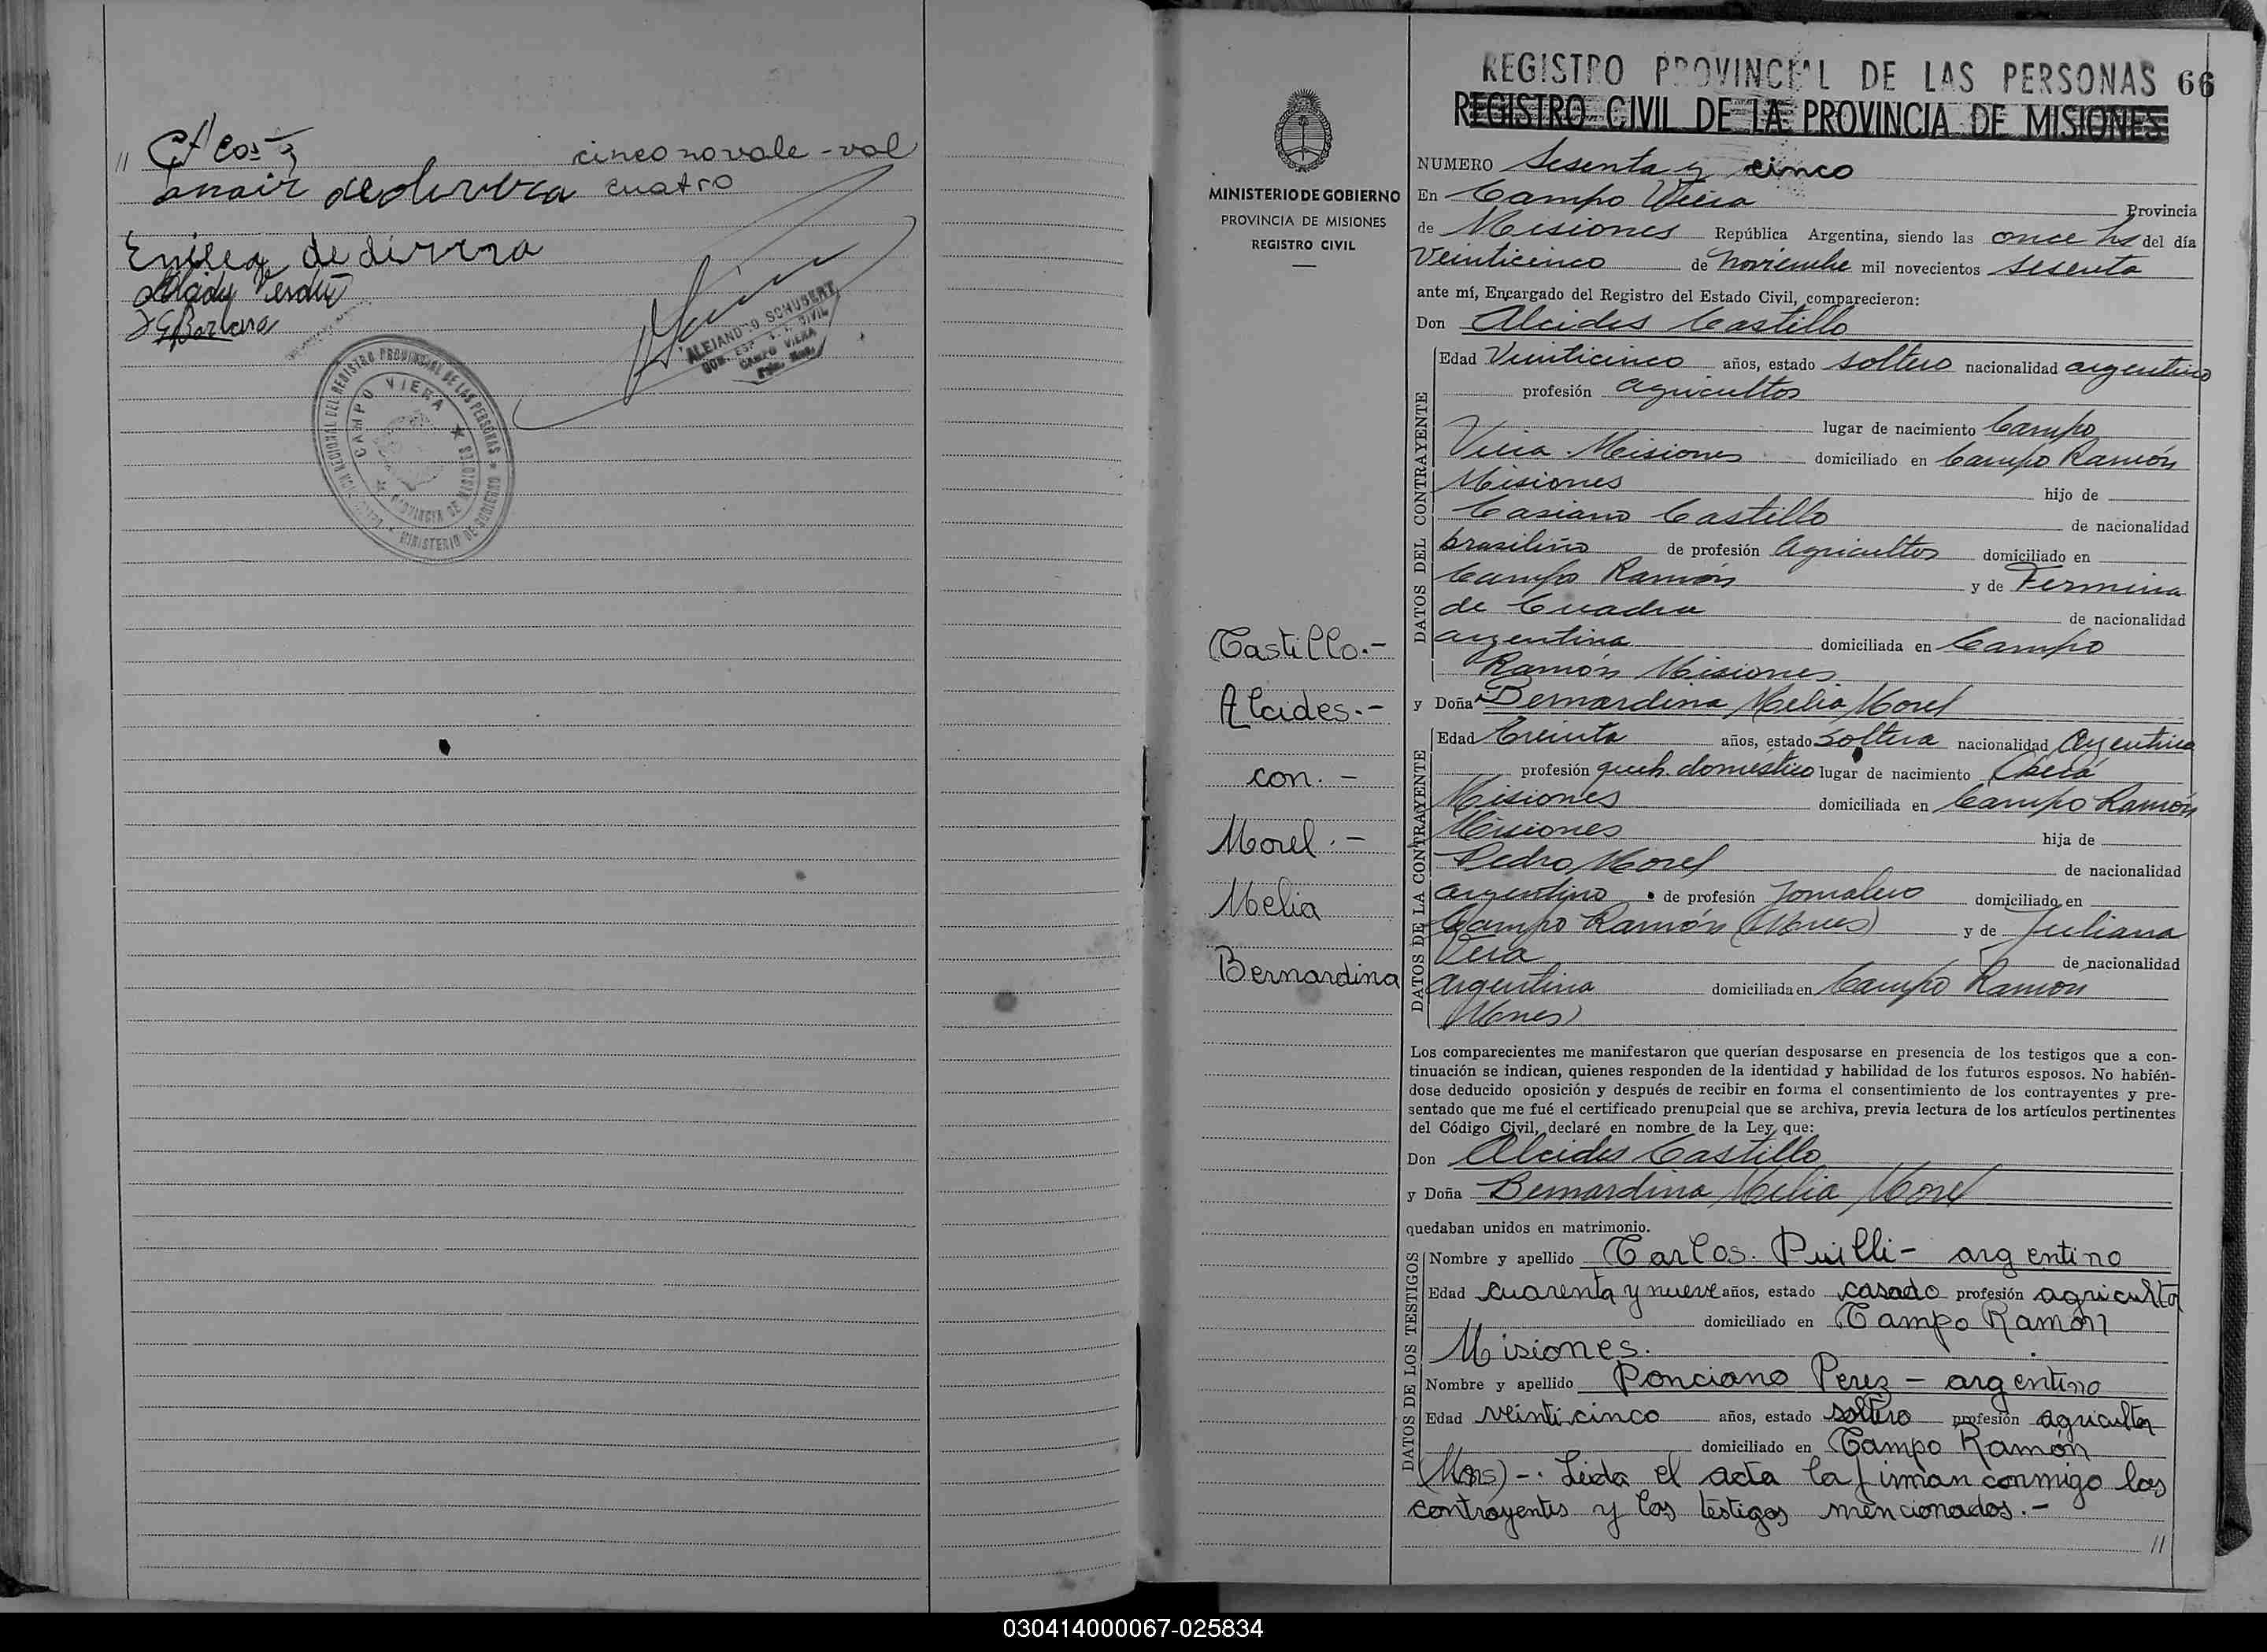 cinco no vale - val
cuatro
ALEJANDRO SCHUBERT
CAMPO VIERA
CAMPO VIERA
PROVINCIA DE MISIONES
MINISTERIO DE GOBIERNO
REGISTRO PROVINCIAL DE LAS PERSONAS 66
REGISTRO CIVIL DE LA PROVINCIA DE MISIONES
MINISTERIO DE GOBIERNO
PROVINCIA DE MISIONES
REGISTRO CIVIL
Castillo.-
Alcides.-
con.-
Morel.-
Melia
Bernardina
NUMERO Sesenta y cinco
En Campo Viera Provincia
de Misiones República Argentina, siendo las once hs del día
Veinticinco de Noviembre mil novecientos sesenta
ante mí, Encargado del Registro del Estado Civil, comparecieron:
Don Alcides Castillo
DATOS DEL CONTRAYENTE
Edad Veinticinco años, estado soltero nacionalidad argentino
profesión agricultor
lugar de nacimiento Campo
Viera Misiones domiciliado en Campo Ramón
Misiones hijo de
Casiano Castillo de nacionalidad
brasilino de profesión Agricultor domiciliado en
Campo Ramón y de Fermina
de Cuadra de nacionalidad
argentina domiciliada en Campo
Ramón Misiones
y Doña Bernardina Melia Morel
DATOS DE LA CONTRAYENTE
Edad Treinta años, estado soltera nacionalidad Argentina
profesión queh. doméstico lugar de nacimiento Oberá
Misiones domiciliada en Campo Ramón
Misiones hija de
Pedro Morel de nacionalidad
argentino de profesión Jornalero domiciliado en
Campo Ramón (Mnes) y de Juliana
Vera de nacionalidad
argentina domiciliada en Campo Ramón
Mnes)
Los comparecientes me manifestaron que querían desposarse en presencia de los testigos que a con-
tinuación se indican, quienes responden de la identidad y habilidad de los futuros esposos. No habién-
dose deducido oposición y después de recibir en forma el consentimiento de los contrayentes y pre-
sentado que me fué el certificado prenupcial que se archiva, previa lectura de los artículos pertinentes
del Código Civil, declaré en nombre de la Ley que:
Don Alcides Castillo
y Doña Bernardina Melia Morel
quedaban unidos en matrimonio.
DATOS DE LOS TESTIGOS
Nombre y apellido Carlos Puilli - argentino
Edad cuarenta y nueve años, estado casado profesión agricultor
domiciliado en Campo Ramón
Misiones.
Nombre y apellido Ponciano Perez - argentino
Edad veinticinco años, estado soltero profesión agricultor
domiciliado en Campo Ramón
(Mns) -. Leida el acta la firman conmigo los
contrayentes y los testigos mencionados.-
//
030414000067-025834